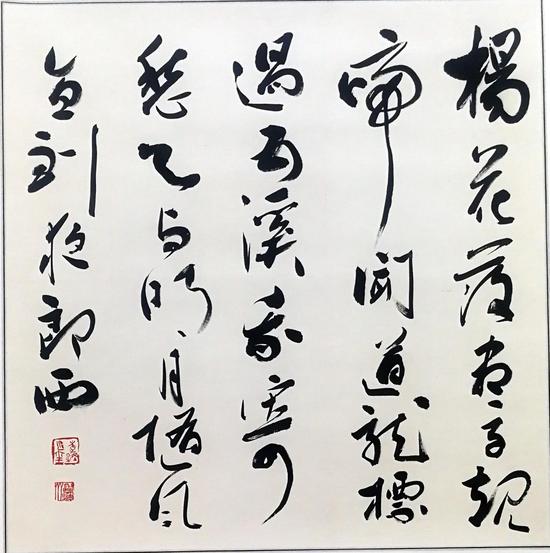 楊花落尽子規
啼聞道龍標
過五溪我寄
愁心与明月随风
直到夜郎西